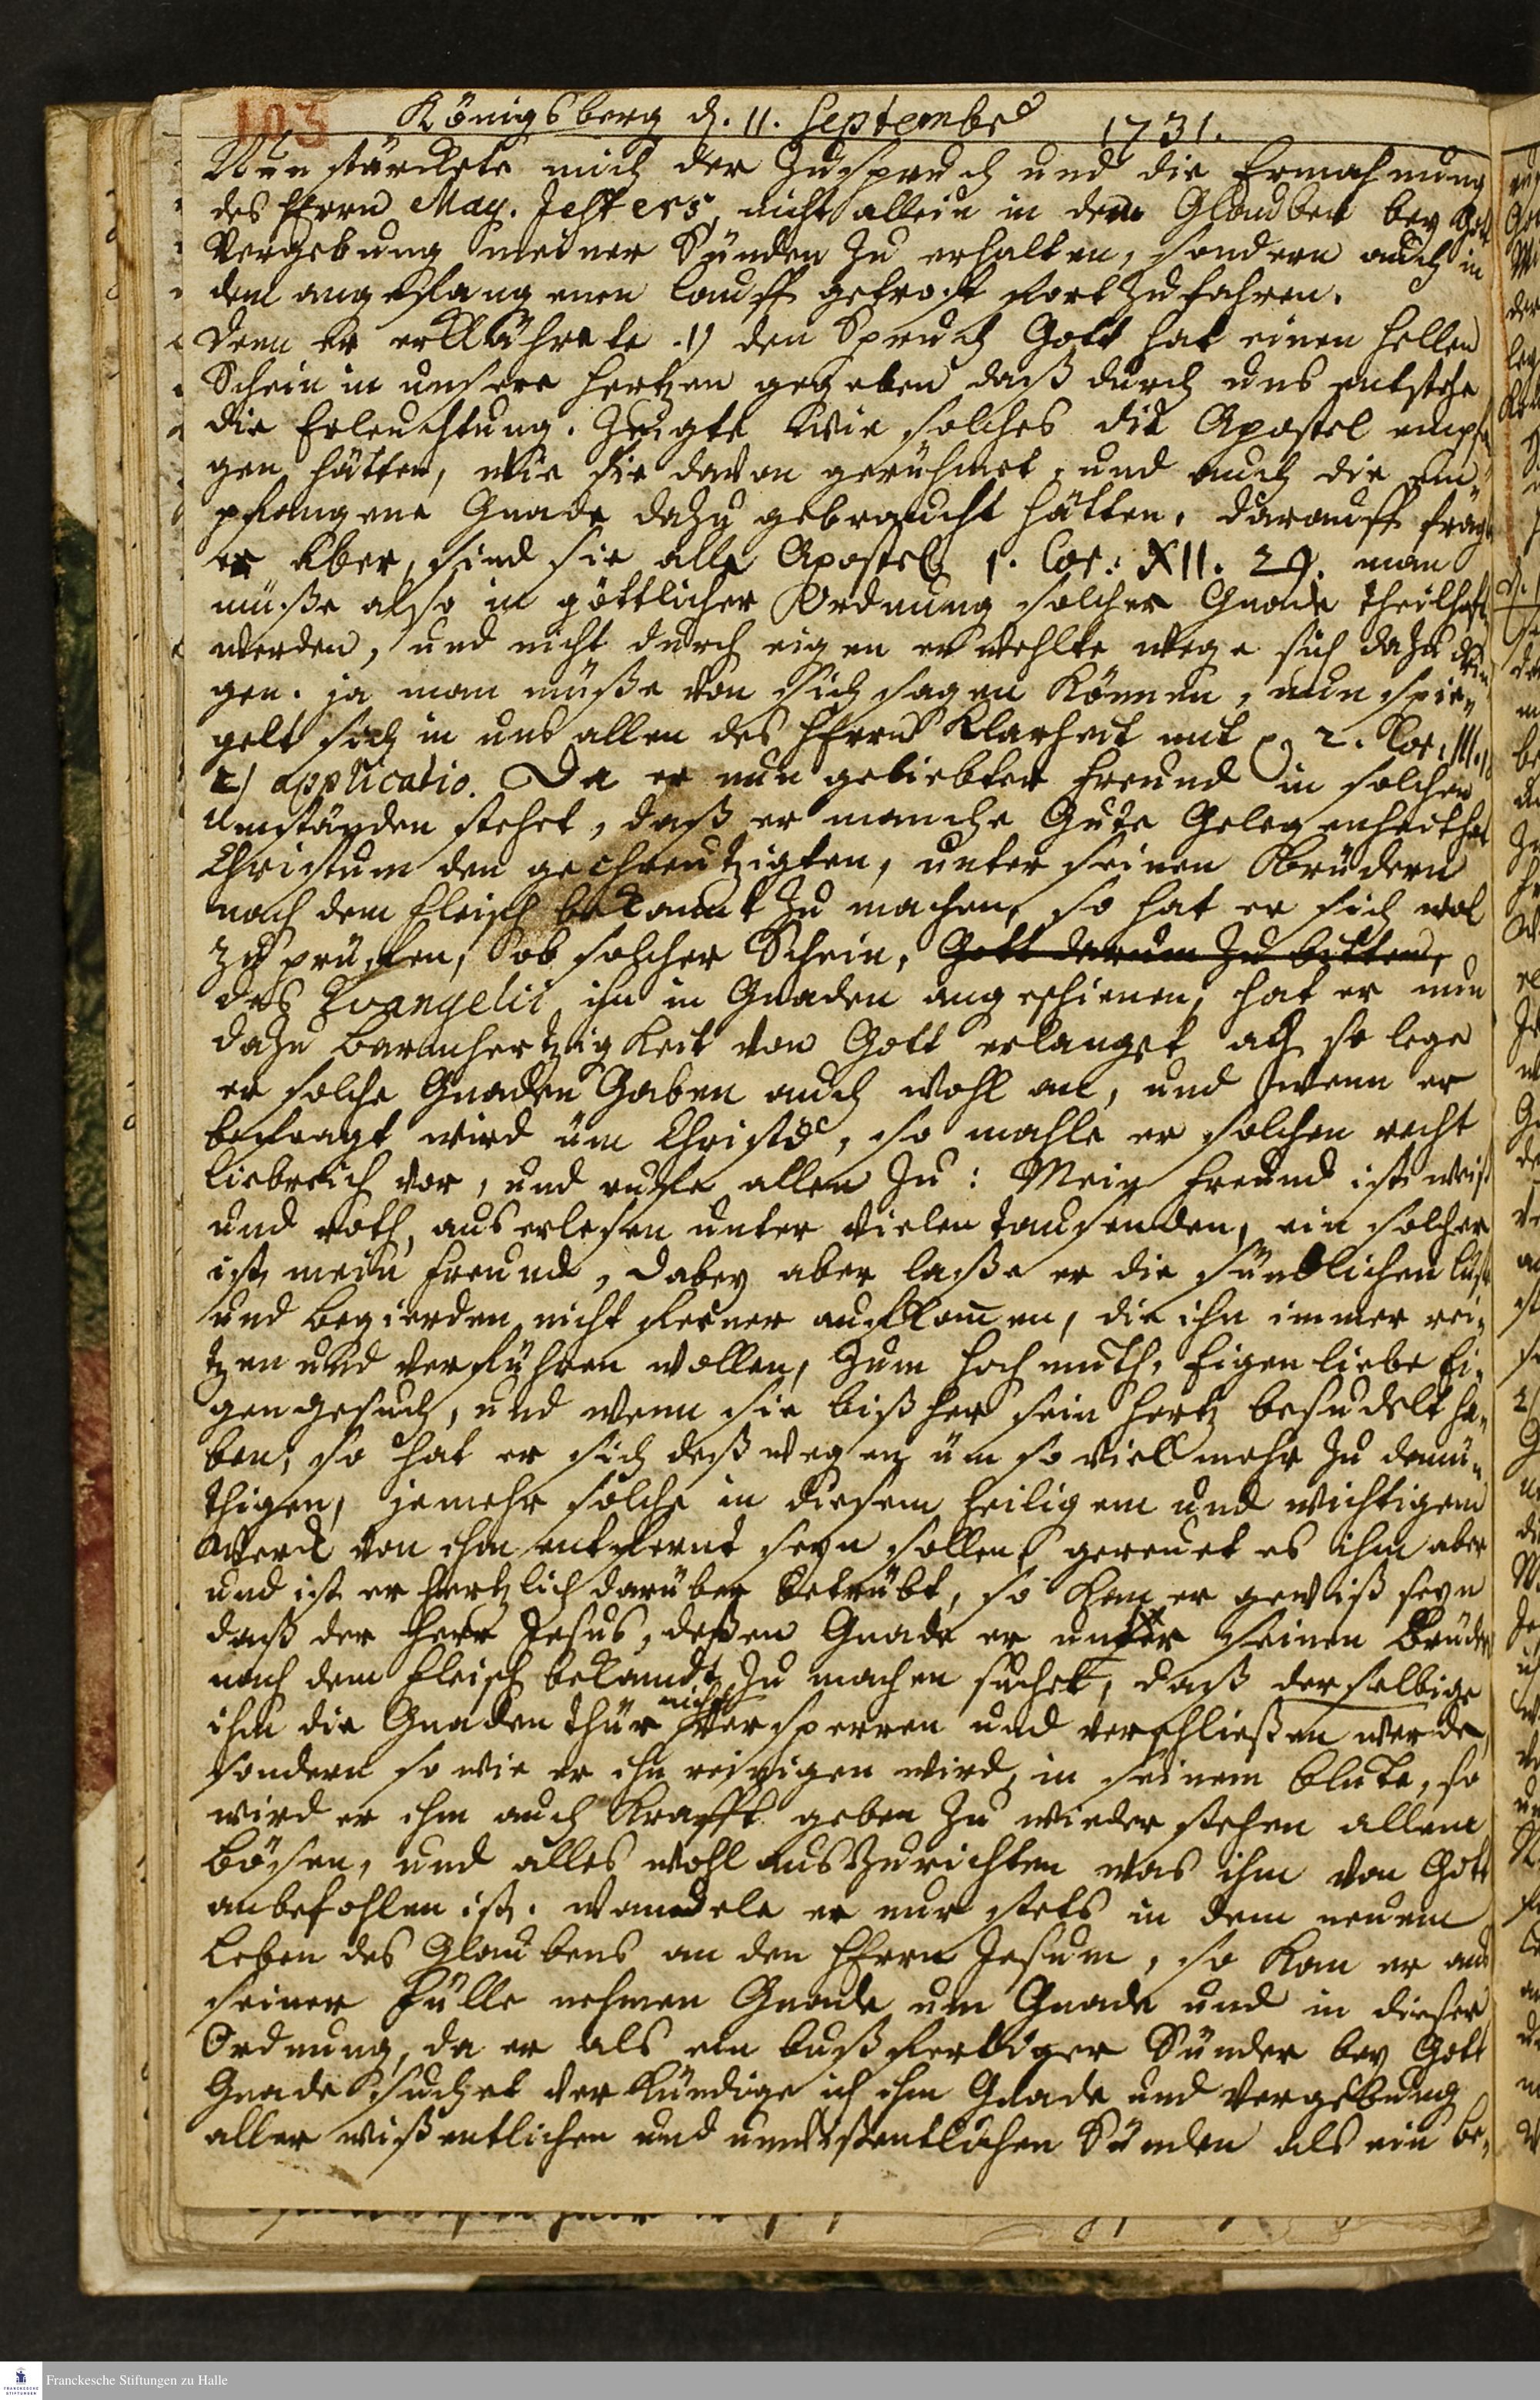 103
Königsberg d. 11. September 1731.
Nun stärckete mich der Zuspruch und die Ermahnung
des HErrn Mag. Jesters, nicht allein in dem Glauben bey Gott
Vergebung meiner Sünden zu erhalten, sondern auch in
dem angefangenen Lauff getrost fortzufahren.
Denn er erklährete .1) den Spruch Gott hat einen hellen
Schein in unsere Hertzen gegeben daß durch uns entstehe
die Erleuchtung. Zeigte wie solches die Apostel empfan
gen hätten, wie sie davon gerühmet, und auch die em-
pfangene Gnade dazu gebraucht hätten, darauff fragte
er aber, sind sie alle Apostel 1. Cor: XII. 29. man
müße also in göttlicher Ordnung solcher Gnade theilhaft
werden, und nicht durch eigen erwehlte Wege sich dazu drin
gen. ja man müße von sich sagen können, nun spie-
gelt sich in uns allen des HErrn Klarheit mit p 2. Cor: III. 18
2) applicatio. Da er nun geliebter Freund in solchen
Umständen stehet, daß er manche Gute Gelegenheit hat
Christum den gechreutzigten, unter seinen Brüdern
nach dem Fleisch bekannt zu machen, so hat er sich wol
zu prüfen, ob solcher Schein, Gott darum zu bitten,
des Evangelii ihn in Gnaden angeschienen, hat er nun
dazu Barmhertzigkeit von Gott erlanget ach so lege
er solche Gnaden Gaben auch wohl an, und wenn er
befragt wird üm Christo, so mahle er solchen recht
liebreich vor, und ruffe allen zu: Mein Freund ist weiß
und roth, auserlesen unter vielen tausenden, ein solcher
ist mein Freund, dabey aber laße er die sündlichen Lüste
und Begierden nicht ferner aufkom̅en, die ihn immer rei-
tzen und verführen wollen, zum Hochmuth, Eigenliebe Ei-
gengesuch, und wenn sie bißher sein Hertz besudelt ha-
ben, so hat er sich deßwegen üm so viel mehr zu demü-
thigen, jemehr solche in diesem heiligem und wichtigem
Werck von ihm entfernt seyn sollen, gereuet es ihm aber
und ist er hertzlich darüber betrübt, so kan er gewiß seyn
daß der Herr Jesus, deßen Gnade er unter seinen Brüdern
nach dem Fleisch bekandt zu machen suchet, daß derselbige
ihm die Gnaden thür nicht versperren und verschließen werde,
sondern so wie er ihn reinigen wird, in seinem Blute, so
wird er ihm auch Krafft geben zu wiederstehen allem
Bösen, und alles wohl auszurichten was ihm von Gott
anbefohlen ist. wandele er nur stets in dem neuem
Leben des Glaubens an den HErrn Jesum, so kan er aus
seiner Fülle nehmen Gnade um Gnade und in dieser
Ordnung, da er als ein bußfertiger Sünder bey Gott
Gnade suchet verkündige ich ihm Gnade und Vergebung
aller wißentlichen und unwißentlichen Sünden als ein be-
Franckesche Stiftungen zu Halle